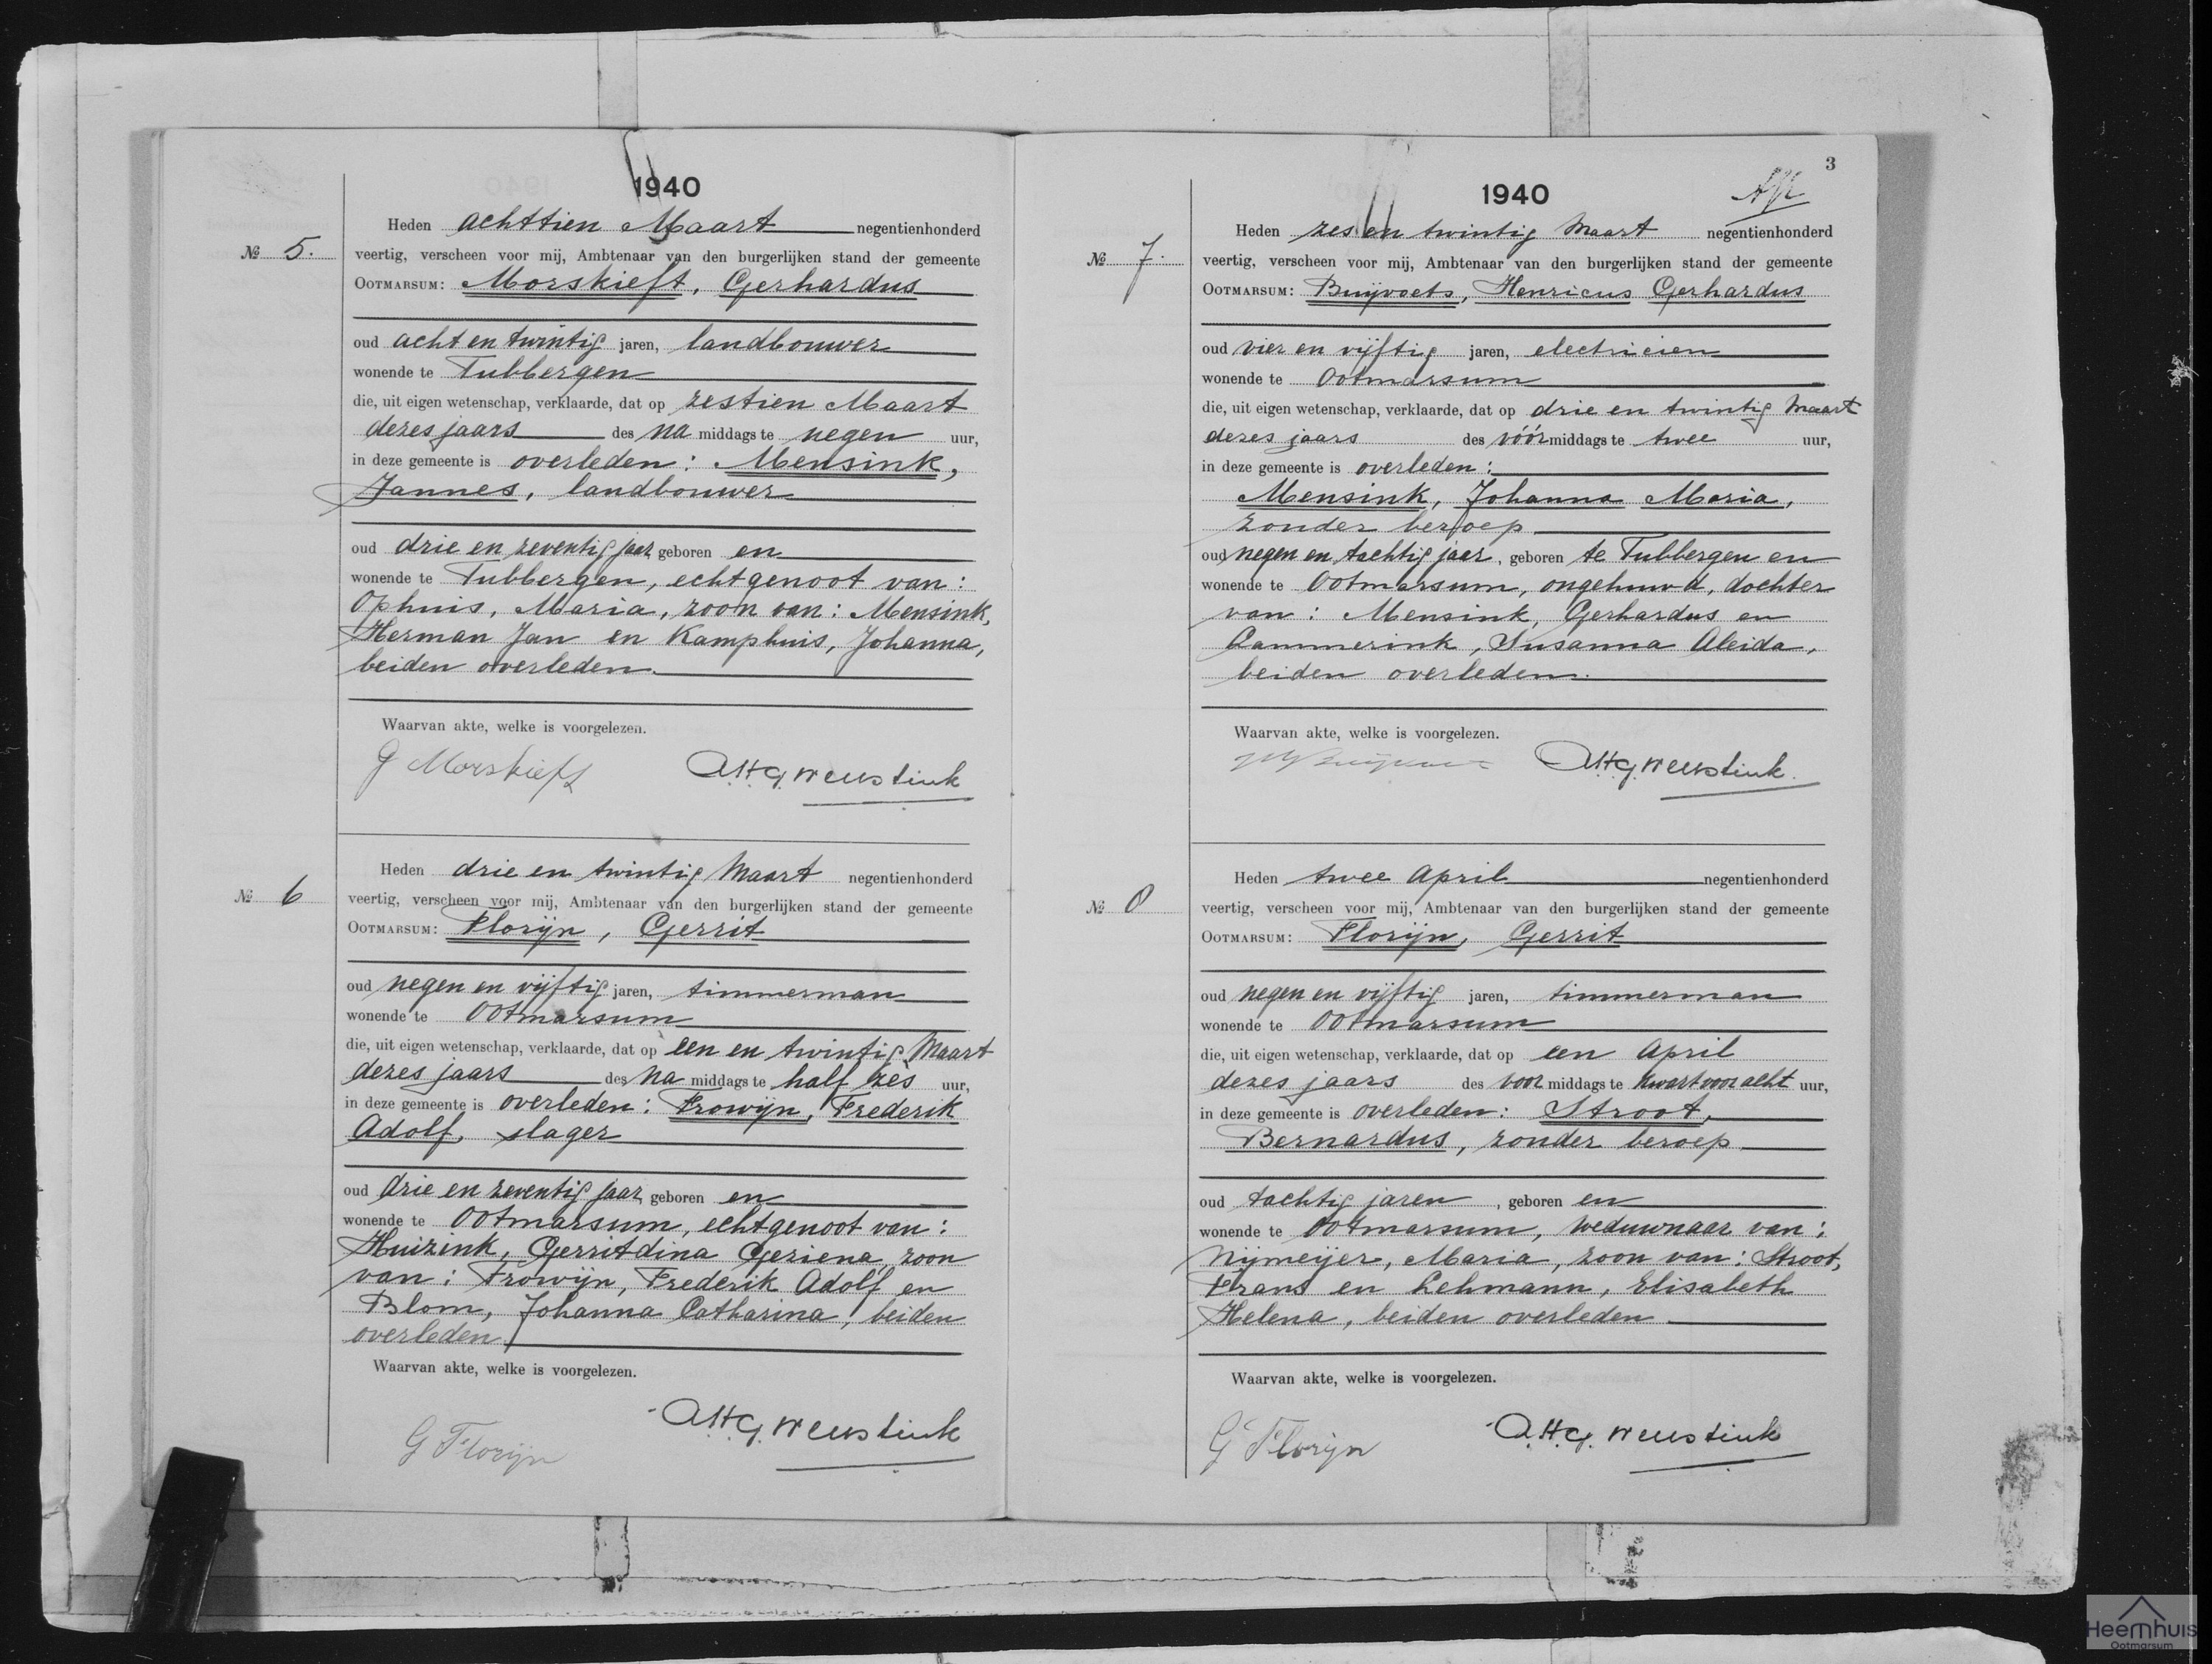 1940
Heden achttien Maart negentienhonderd
№ 5.
veertig, verscheen voor mij, Ambtenaar van den burgerlijken stand der gemeente
OOTMARSUM: Morskieft, Gerhardus
oud acht en twintig jaren, landbouwer
wonende te Tubbergen
die, uit eigen wetenschap, verklaarde, dat op zestien Maart
dezes jaars des na middags te negen uur,
in deze gemeente is overleden: Mensink,
Jannes, landbouwer
oud drie en zeventig jaar, geboren en
wonende te Tubbergen, echtgenoot van:
Ophuis, Maria, zoon van: Mensink,
Herman Jan en Kamphuis, Johanna,
beiden overleden.
Waarvan akte, welke is voorgelezen.
G Morskieft A.H.G. Weustink
Heden drie en twintig Maart negentienhonderd
№ 6
veertig, verscheen voor mij, Ambtenaar van den burgerlijken stand der gemeente
OOTMARSUM: Florijn, Gerrit
oud negen en vijftig jaren, timmerman
wonende te Ootmarsum
die, uit eigen wetenschap, verklaarde, dat op een en twintig Maart
dezes jaars des na middags te half zes uur,
in deze gemeente is overleden: Frowijn, Frederik
Adolf, slager
oud drie en zeventig jaar, geboren en
wonende te Ootmarsum, echtgenoot van:
Huizink, Gerritdina Geziena, zoon
van: Frowijn, Frederik Adolf en
Blom, Johanna Catharina, beiden
overleden
Waarvan akte, welke is voorgelezen.
G Florijn A.H.G. Weustink
3
1940
Heden zes en twintig Maart negentienhonderd
№ 7.
veertig, verscheen voor mij, Ambtenaar van den burgerlijken stand der gemeente
OOTMARSUM: Buijvoets, Henricus Gerhardus
oud vier en vijftig jaren, electricien
wonende te Ootmarsum
die, uit eigen wetenschap, verklaarde, dat op drie en twintig Maart
dezes jaars des vóór middags te twee uur,
in deze gemeente is overleden:
Mensink, Johanna Maria,
zonder beroep
oud negen en tachtig jaar, geboren te Tubbergen en
wonende te Ootmarsum, ongehuwd, dochter
van: Mensink, Gerhardus en
Cammerink, Susanna Aleida,
beiden overleden.
Waarvan akte, welke is voorgelezen.
A.H.G. Weustink.
Heden twee April negentienhonderd
№ 8
veertig, verscheen voor mij, Ambtenaar van den burgerlijken stand der gemeente
OOTMARSUM: Florijn, Gerrit
oud negen en vijftig jaren, timmerman
wonende te Ootmarsum
die, uit eigen wetenschap, verklaarde, dat op een April
dezes jaars des voor middags te kwart voor acht uur,
in deze gemeente is overleden: Stroot,
Bernardus, zonder beroep
oud tachtig jaren, geboren en
wonende te Ootmarsum, weduwnaar van:
Nijmeijer, Maria, zoon van: Stroot,
Frans en Lehmann, Elisabeth
Helena, beiden overleden.
Waarvan akte, welke is voorgelezen.
G Florijn A.H.G. Weustink
Heemhuis
Ootmarsum